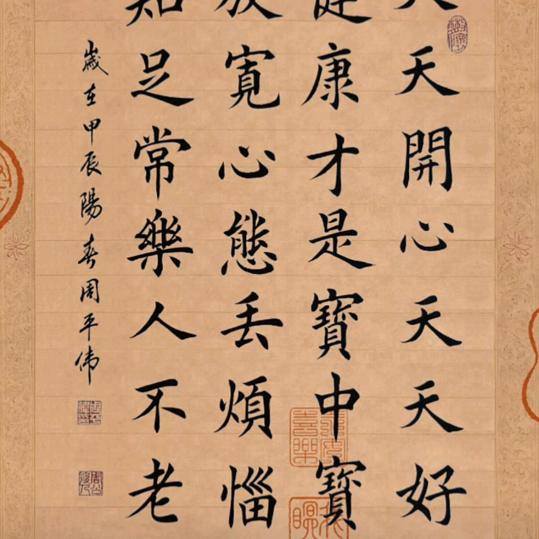 天天開心天天好
健康才是寶中寶
放寬心態丢煩惱
知足常樂人不老
歲在甲辰陽春周平偉